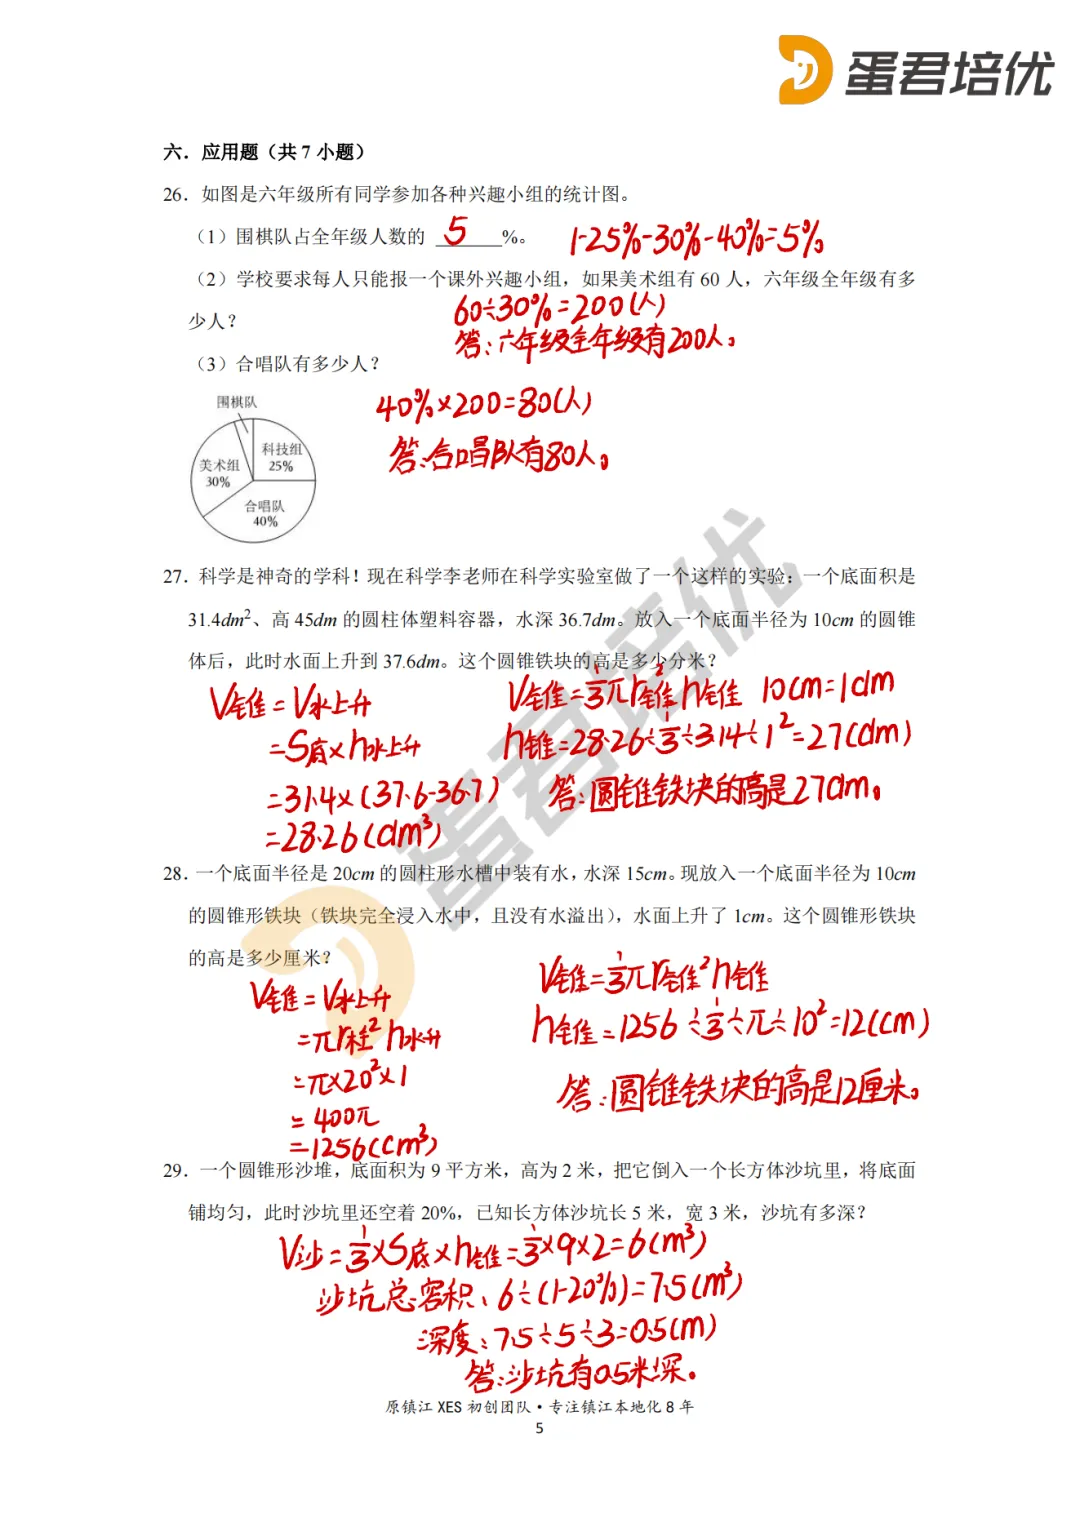 蛋君培优
六．应用题（共 7 小题）
26．如图是六年级所有同学参加各种兴趣小组的统计图。
（1）围棋队占全年级人数的 5 %。 1-25%-30%-40%=5%
（2）学校要求每人只能报一个课外兴趣小组，如果美术组有 60 人，六年级全年级有多
少人？ 60÷30%=200(人)
答：六年级全年级有200人。
（3）合唱队有多少人？
40%×200=80(人)
答：合唱队有80人。
围棋队
科技组
25%
美术组
30%
合唱队
40%
27．科学是神奇的学科！现在科学李老师在科学实验室做了一个这样的实验：一个底面积是
31.4dm²、高 45dm 的圆柱体塑料容器，水深 36.7dm。放入一个底面半径为 10cm 的圆锥
体后，此时水面上升到 37.6dm。这个圆锥铁块的高是多少分米？
V锥=V水上升
=S底×h水上升
=31.4×(37.6-36.7)
=28.26(dm³)
V锥=1/3πr锥²h锥 10cm=1dm
h锥=28.26÷1/3÷3.14÷1²=27(dm)
答：圆锥铁块的高是27dm。
28．一个底面半径是 20cm 的圆柱形水槽中装有水，水深 15cm。现放入一个底面半径为 10cm
的圆锥形铁块（铁块完全浸入水中，且没有水溢出），水面上升了 1cm。这个圆锥形铁块
的高是多少厘米？
V锥=V水上升
=πr柱²h水升
=π×20²×1
=400π
=1256(cm³)
V锥=1/3πr锥²h锥
h锥=1256÷1/3÷π÷10²=12(cm)
答：圆锥铁块的高是12厘米。
29．一个圆锥形沙堆，底面积为 9 平方米，高为 2 米，把它倒入一个长方体沙坑里，将底面
铺均匀，此时沙坑里还空着 20%，已知长方体沙坑长 5 米，宽 3 米，沙坑有多深？
V沙=1/3×S底×h锥=1/3×9×2=6(m³)
沙坑总容积：6÷(1-20%)=7.5(m³)
深度：7.5÷5÷3=0.5(m)
答：沙坑有0.5米深。
原镇江 XES 初创团队·专注镇江本地化 8 年
5
蛋君培优